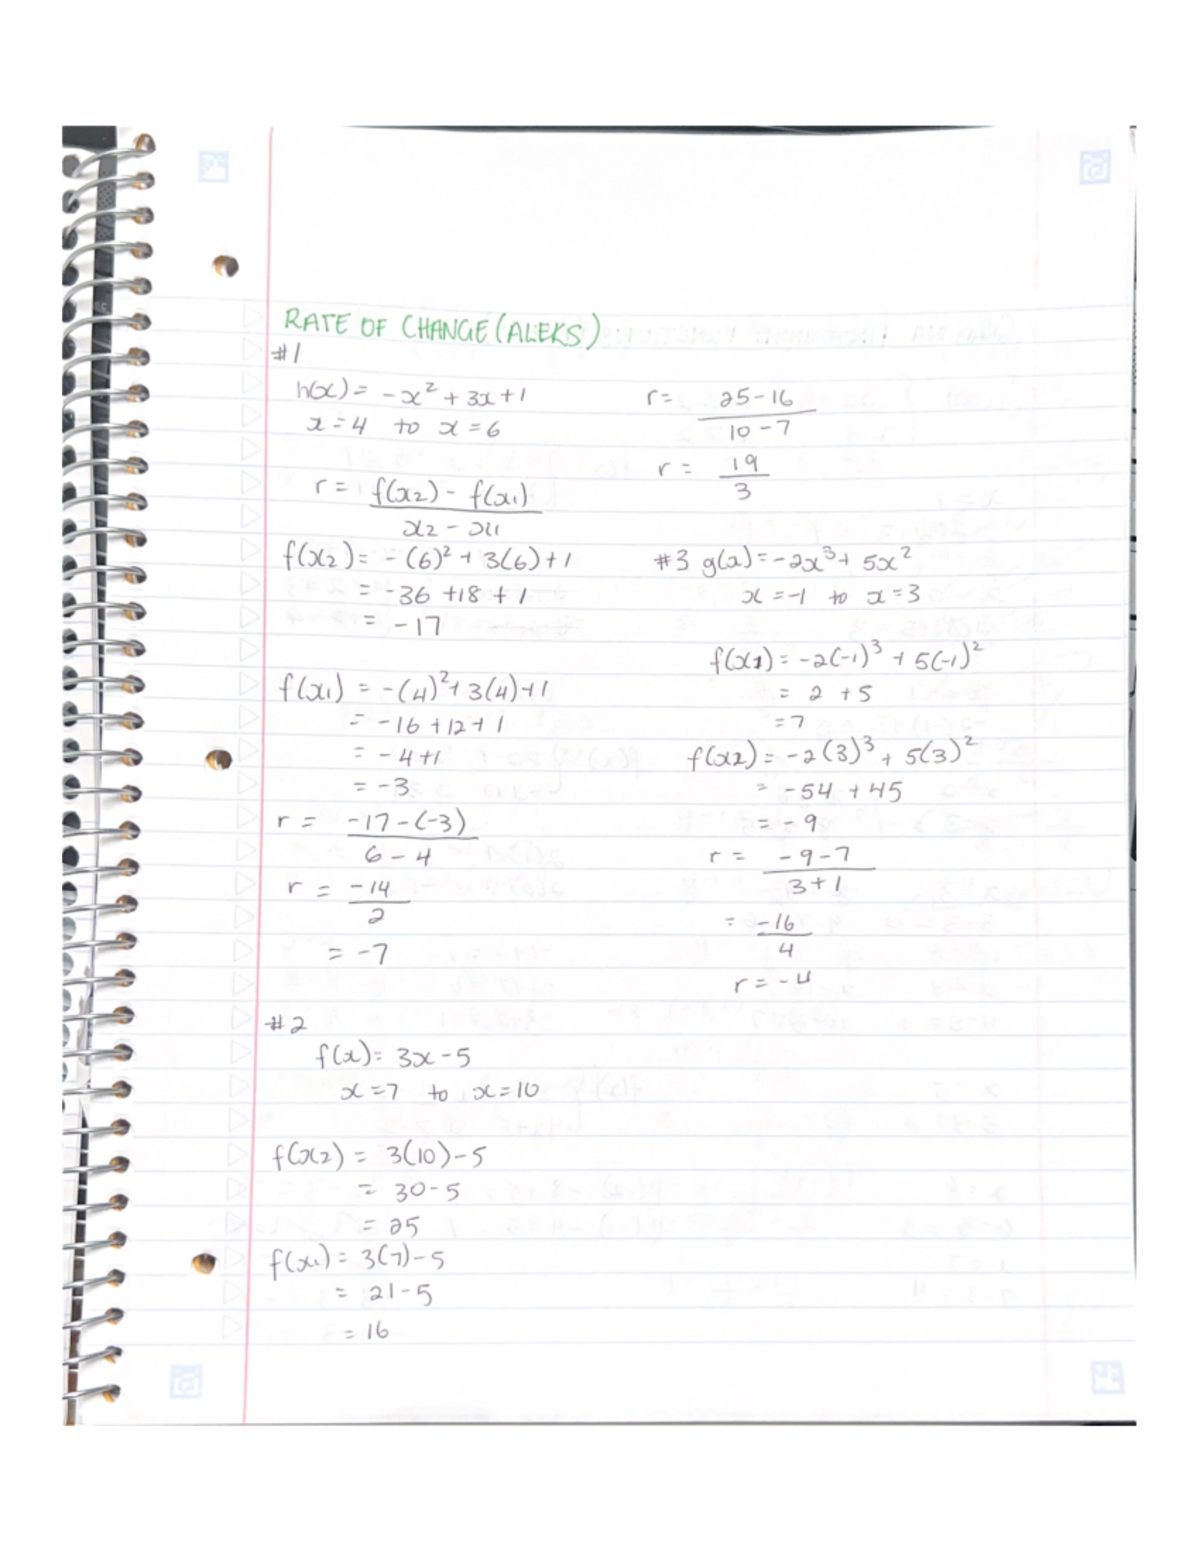 RATE OF CHANGE (ALEKS)
#1
h(x) = -x² + 3x + 1
x = 4 to x = 6
r = f(x2) - f(x1)
x2 - x1
f(x2) = -(6)² + 3(6) + 1
= -36 + 18 + 1
= -17
f(x1) = -(4)² + 3(4) + 1
= -16 + 12 + 1
= -4 + 1
= -3
r = -17 - (-3)
6 - 4
r = -14
2
= -7
#2
f(x) = 3x - 5
x = 7 to x = 10
f(x2) = 3(10) - 5
= 30 - 5
= 25
f(x1) = 3(7) - 5
= 21 - 5
= 16
r = 25 - 16
10 - 7
r = 19
3
#3 g(x) = -2x³ + 5x²
x = -1 to x = 3
f(x1) = -2(-1)³ + 5(-1)²
= 2 + 5
= 7
f(x2) = -2(3)³ + 5(3)²
= -54 + 45
= -9
r = -9 - 7
3 + 1
= -16
4
r = -4